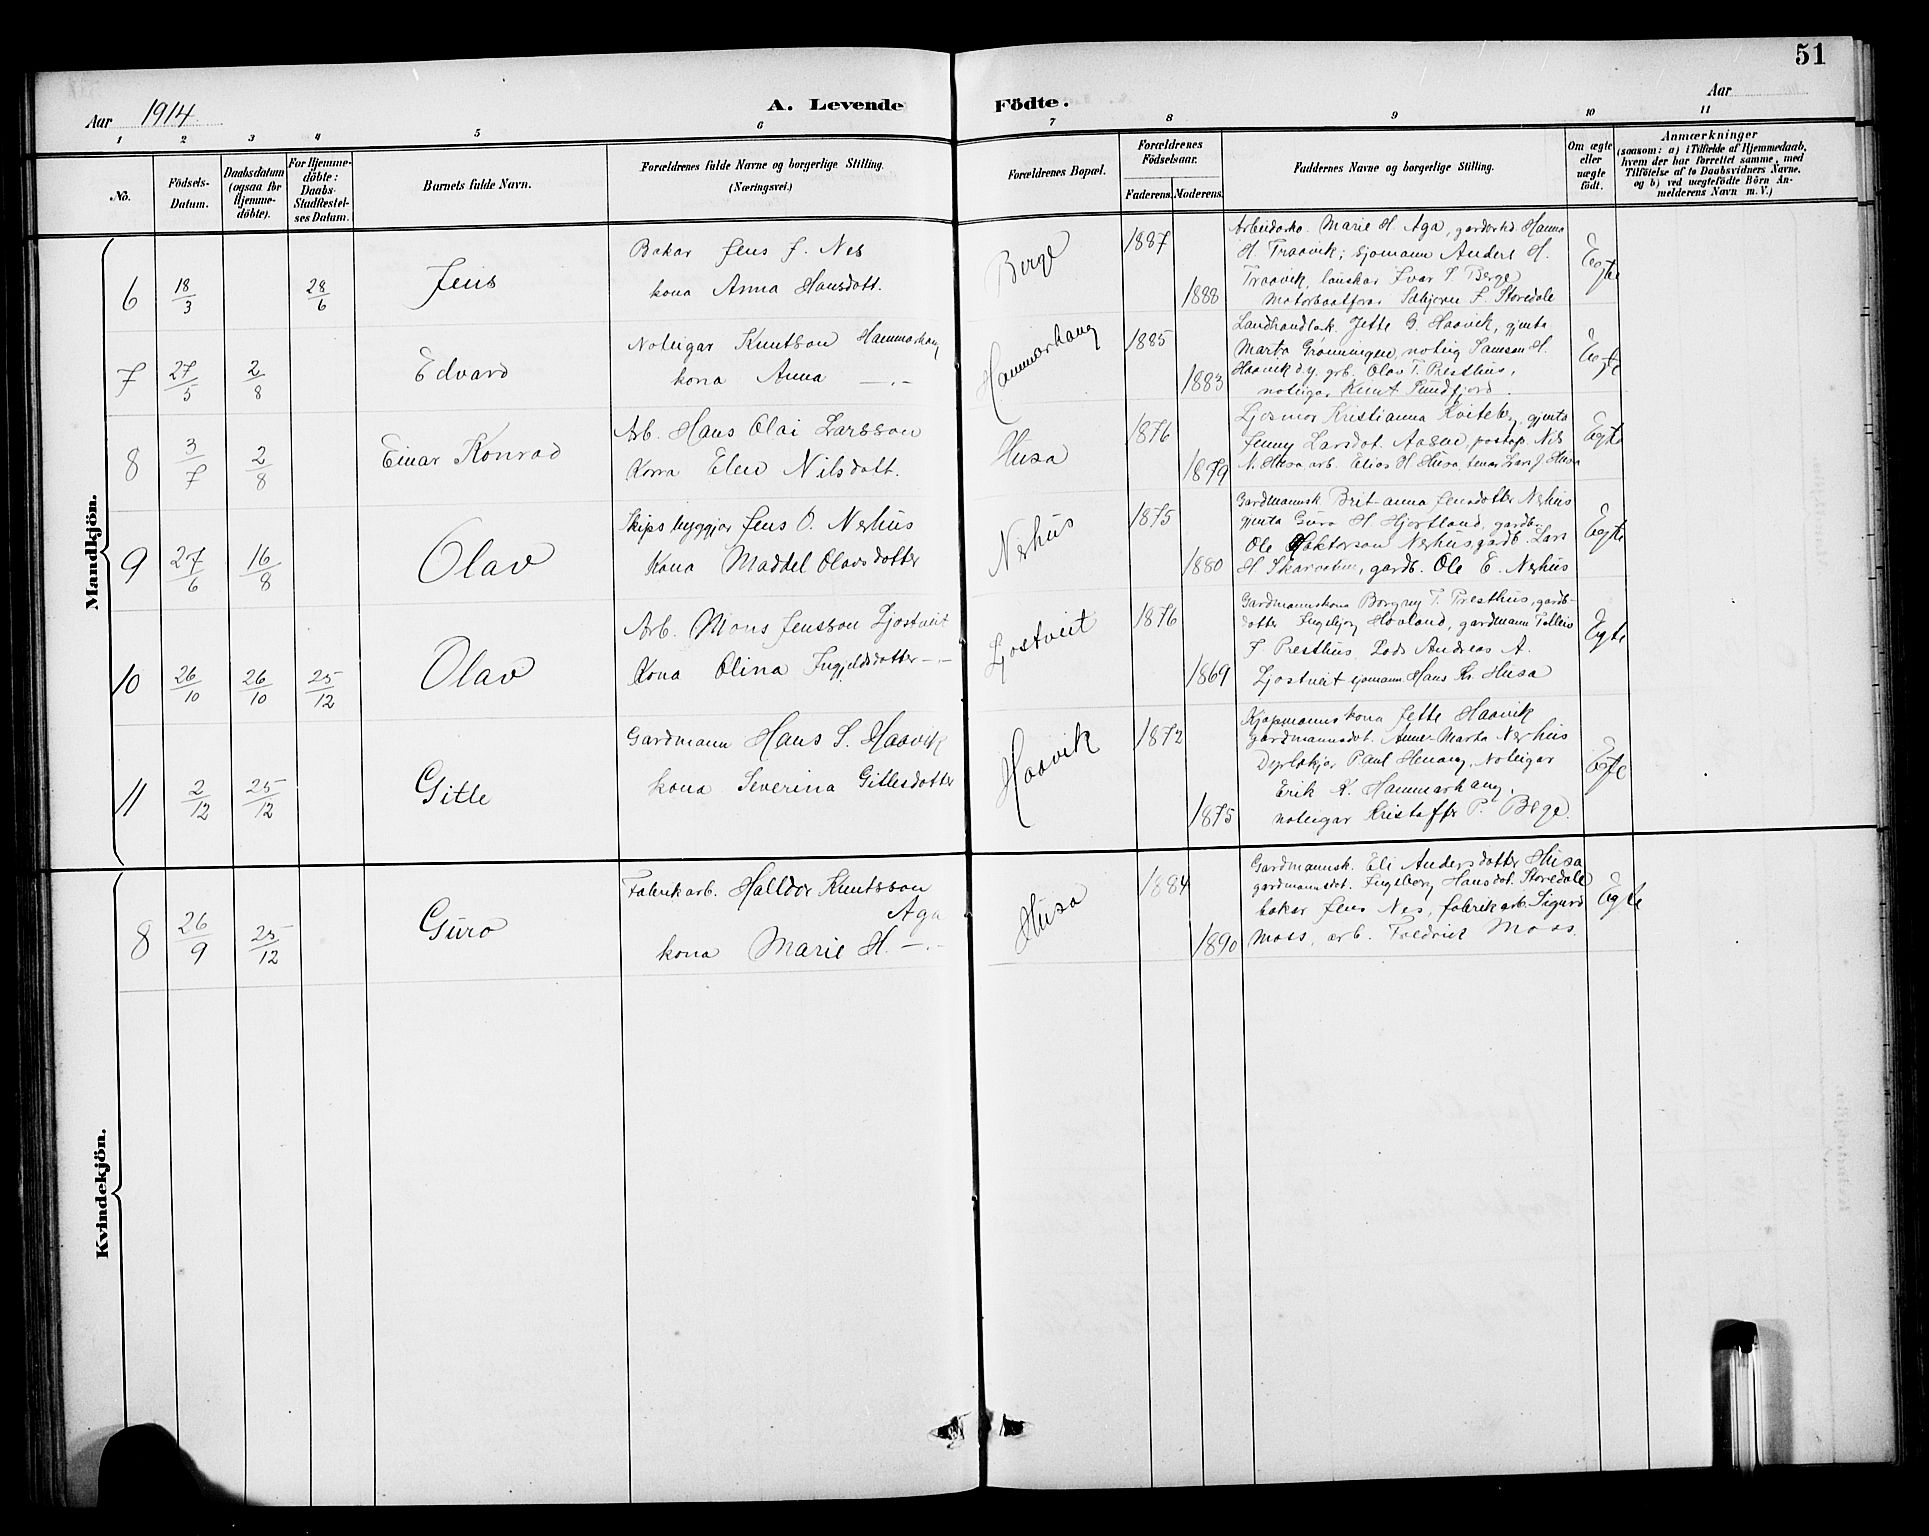 51
Aar 1914.
A. Levende Födte.
Aar
1 2 3 4 5 6 7 8 9 10 11
No.
Födsels-Datum.
Daabsdatum (ogsaa for Hjemme-döbte).
For Hjemme-döbte: Daabs-Stadfæstel-ses Datum.
Barnets fulde Navn.
Forældrenes fulde Navne og borgerlige Stilling. (Næringsvei.)
Forældrenes Bopæl.
Forældrenes Födselsaar.
Faderens. Moderens.
Faddernes Navne og borgerlige Stilling.
Om ægte eller uægte födt.
Anmærkninger
(saasom: a) i Tilfælde af Hjemmedaab,
hvem der har forrettet samme, med
Tilföielse af to Daabsvidners Navne,
og b) ved uægtefödte Börn An-
melderens Navn m. V.)
Mandkjön.
6 18/3 28/6 Jens
Bakar Jens J. Nes
kona Anna Hansdott.
Berge 1887 1888
Arbeidarko. Marie H. Aga, Hanna
H. Traavik; sjømann Anders H.
Traavik, Ivar Berge
Motorbaatførar F. Storedale
Egte
7 27/5 2/8 Edvard
Noteigar Knutson Hammarhaug
kona Anna —„—
Hammarhaug 1885 1883
Landhandlark. Jette G. Haavik, gjenta
Marta Grønningen, noteig Samson H.
Haavik d.y, grb. Olav T. Presthus,
noteigar Knut Sundfjord.
Egte
8 3/7 2/8 Einar Konrad
Arb. Hans Olai Larsson
Kona Elen Nilsdott.
Husa 1876 1879
Ljosmor Kristianna Kviteby, gjenta
Jenny Larsdot. Aasen, postop. Nils
N. Husa, arb. Elias H. Husa, Lars J. Husa
Egte
9 27/6 16/8 Olav
Skipsbyggjar Jens O. Nerhus
Kona Maddel Olavsdotter
Nerhus 1875 1880
Gardmannsk Brit-anna Jensdotter Nerhus
gjenta Guro H Hjortland, gardb.
Ole Nerhus, gardb. Lars
H Skarvatun, gardb. Ole E. Nerhus
Egte
10 26/10 26/10 25/12 Olav
Arb. Mons Jensson Ljostveit
Kona Olina Ingjeldsdotter —„—
Ljostveit 1876 1869
Gardmannskona Borgny T. Presthus, gardb-
dotter Ingebjorg Hovland, gardmann Tolleiv
J. Presthus, Lods Andreas A.
Ljostveit sjomann Hans Kr. Husa
Egte
11 2/12 25/12 Gitle
Gardmann Hans S. Haavik
kona Severina Gitlesdotter
Haavik 1872 1875
Kjøpmannskona Jette Haavik
gardmannsdot. Anne-Marta Nerhus
Paul Henang, Noteigar
Erik K. Hammarhaug,
noteigar Kristoffer P. Berge.
Egte
Kvindekjön.
8 26/9 25/12 Guro
Fabrikarb. Halldor Knutsson
Aga
kona Marie H. —„—
Husa 1884 1890
Gardmannsk. Eli Andersdotter Husa
gardmannsdot. Ingeborg Hansdot. Storedale
bakar Jens Nes, fabrikarb. Sigurd
Moss, arb. Moss.
Egte